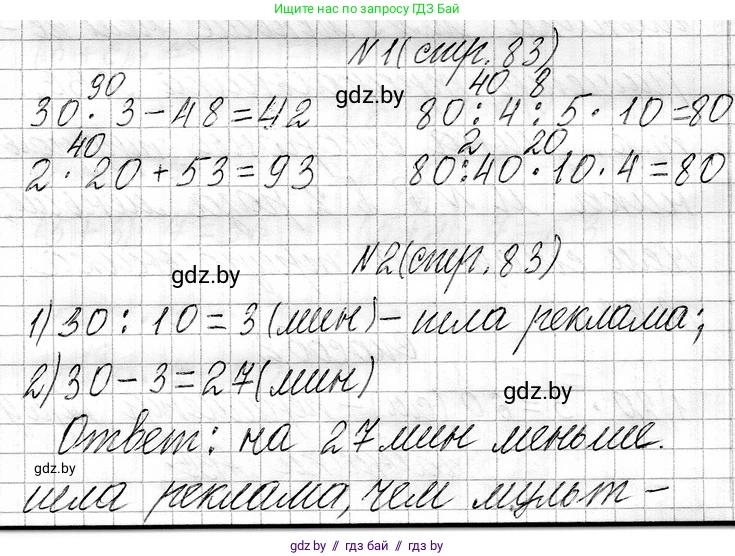 Ищите нас по запросу ГДЗ Бай
N1(стр. 83)
90 40 8
30 · 3 - 48 = 42 gdz.by 80 : 4 : 5 · 10 = 80
40 2 20
2 · 20 + 53 = 93 80:40 · 10 · 4 = 80
N2(стр. 83)
gdz.by
1) 30 : 10 = 3 (мин) - шла реклама;
2) 30 - 3 = 27 (мин)
gdz.by
Ответ: на 27 мин меньше.
gdz.by
шла реклама, чем мульт -
gdz.by // гдз бай // gdz by